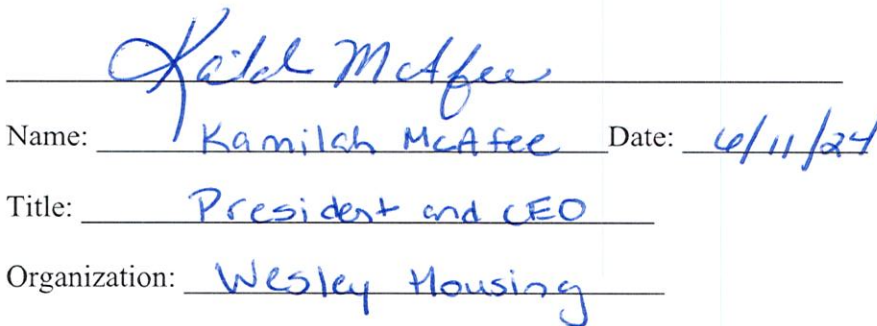 McAfee
Name: Kamilah McAfee Date: 6/11/24
Title: President and CEO
Organization: Wesley Housing